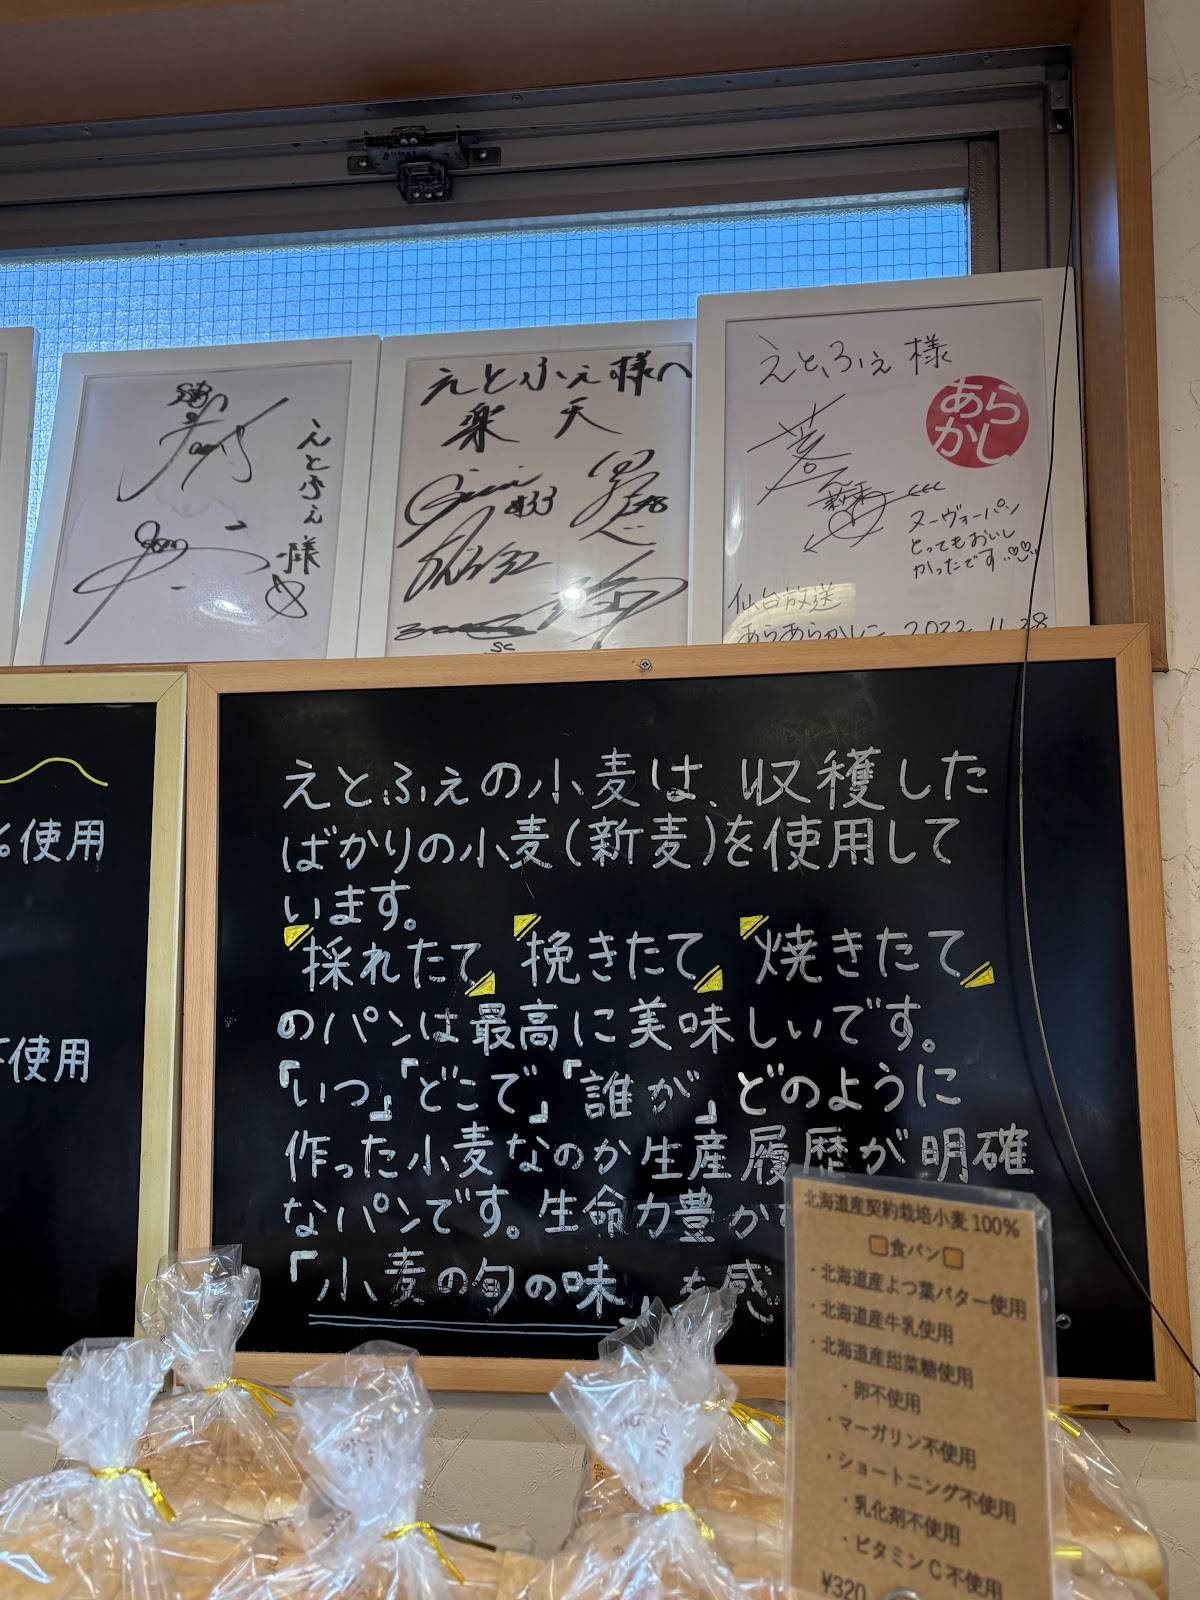 えとふぇ様
えとふぇ様へ
楽天
#33
えとふぇ様
あら
かし
ヌーヴォーパン
とってもおいし
かったです
仙台放送
あらあらかしこ 2022.11.28
%使用
不使用
えとふぇの小麦は、収穫した
ばかりの小麦(新麦)を使用して
います。
採れたて 挽きたて 焼きたて
のパンは最高に美味しいです。
「いつ」「どこで」「誰が」どのように
作った小麦なのか生産履歴が明確
なパンです。生命力豊か
「小麦の旬の味」を感
北海道産契約栽培小麦100%
食パン
・北海道産よつ葉バター使用
・北海道産牛乳使用
・北海道産甜菜糖使用
・卵不使用
・マーガリン不使用
・ショートニング不使用
・乳化剤不使用
・ビタミンC不使用
¥320